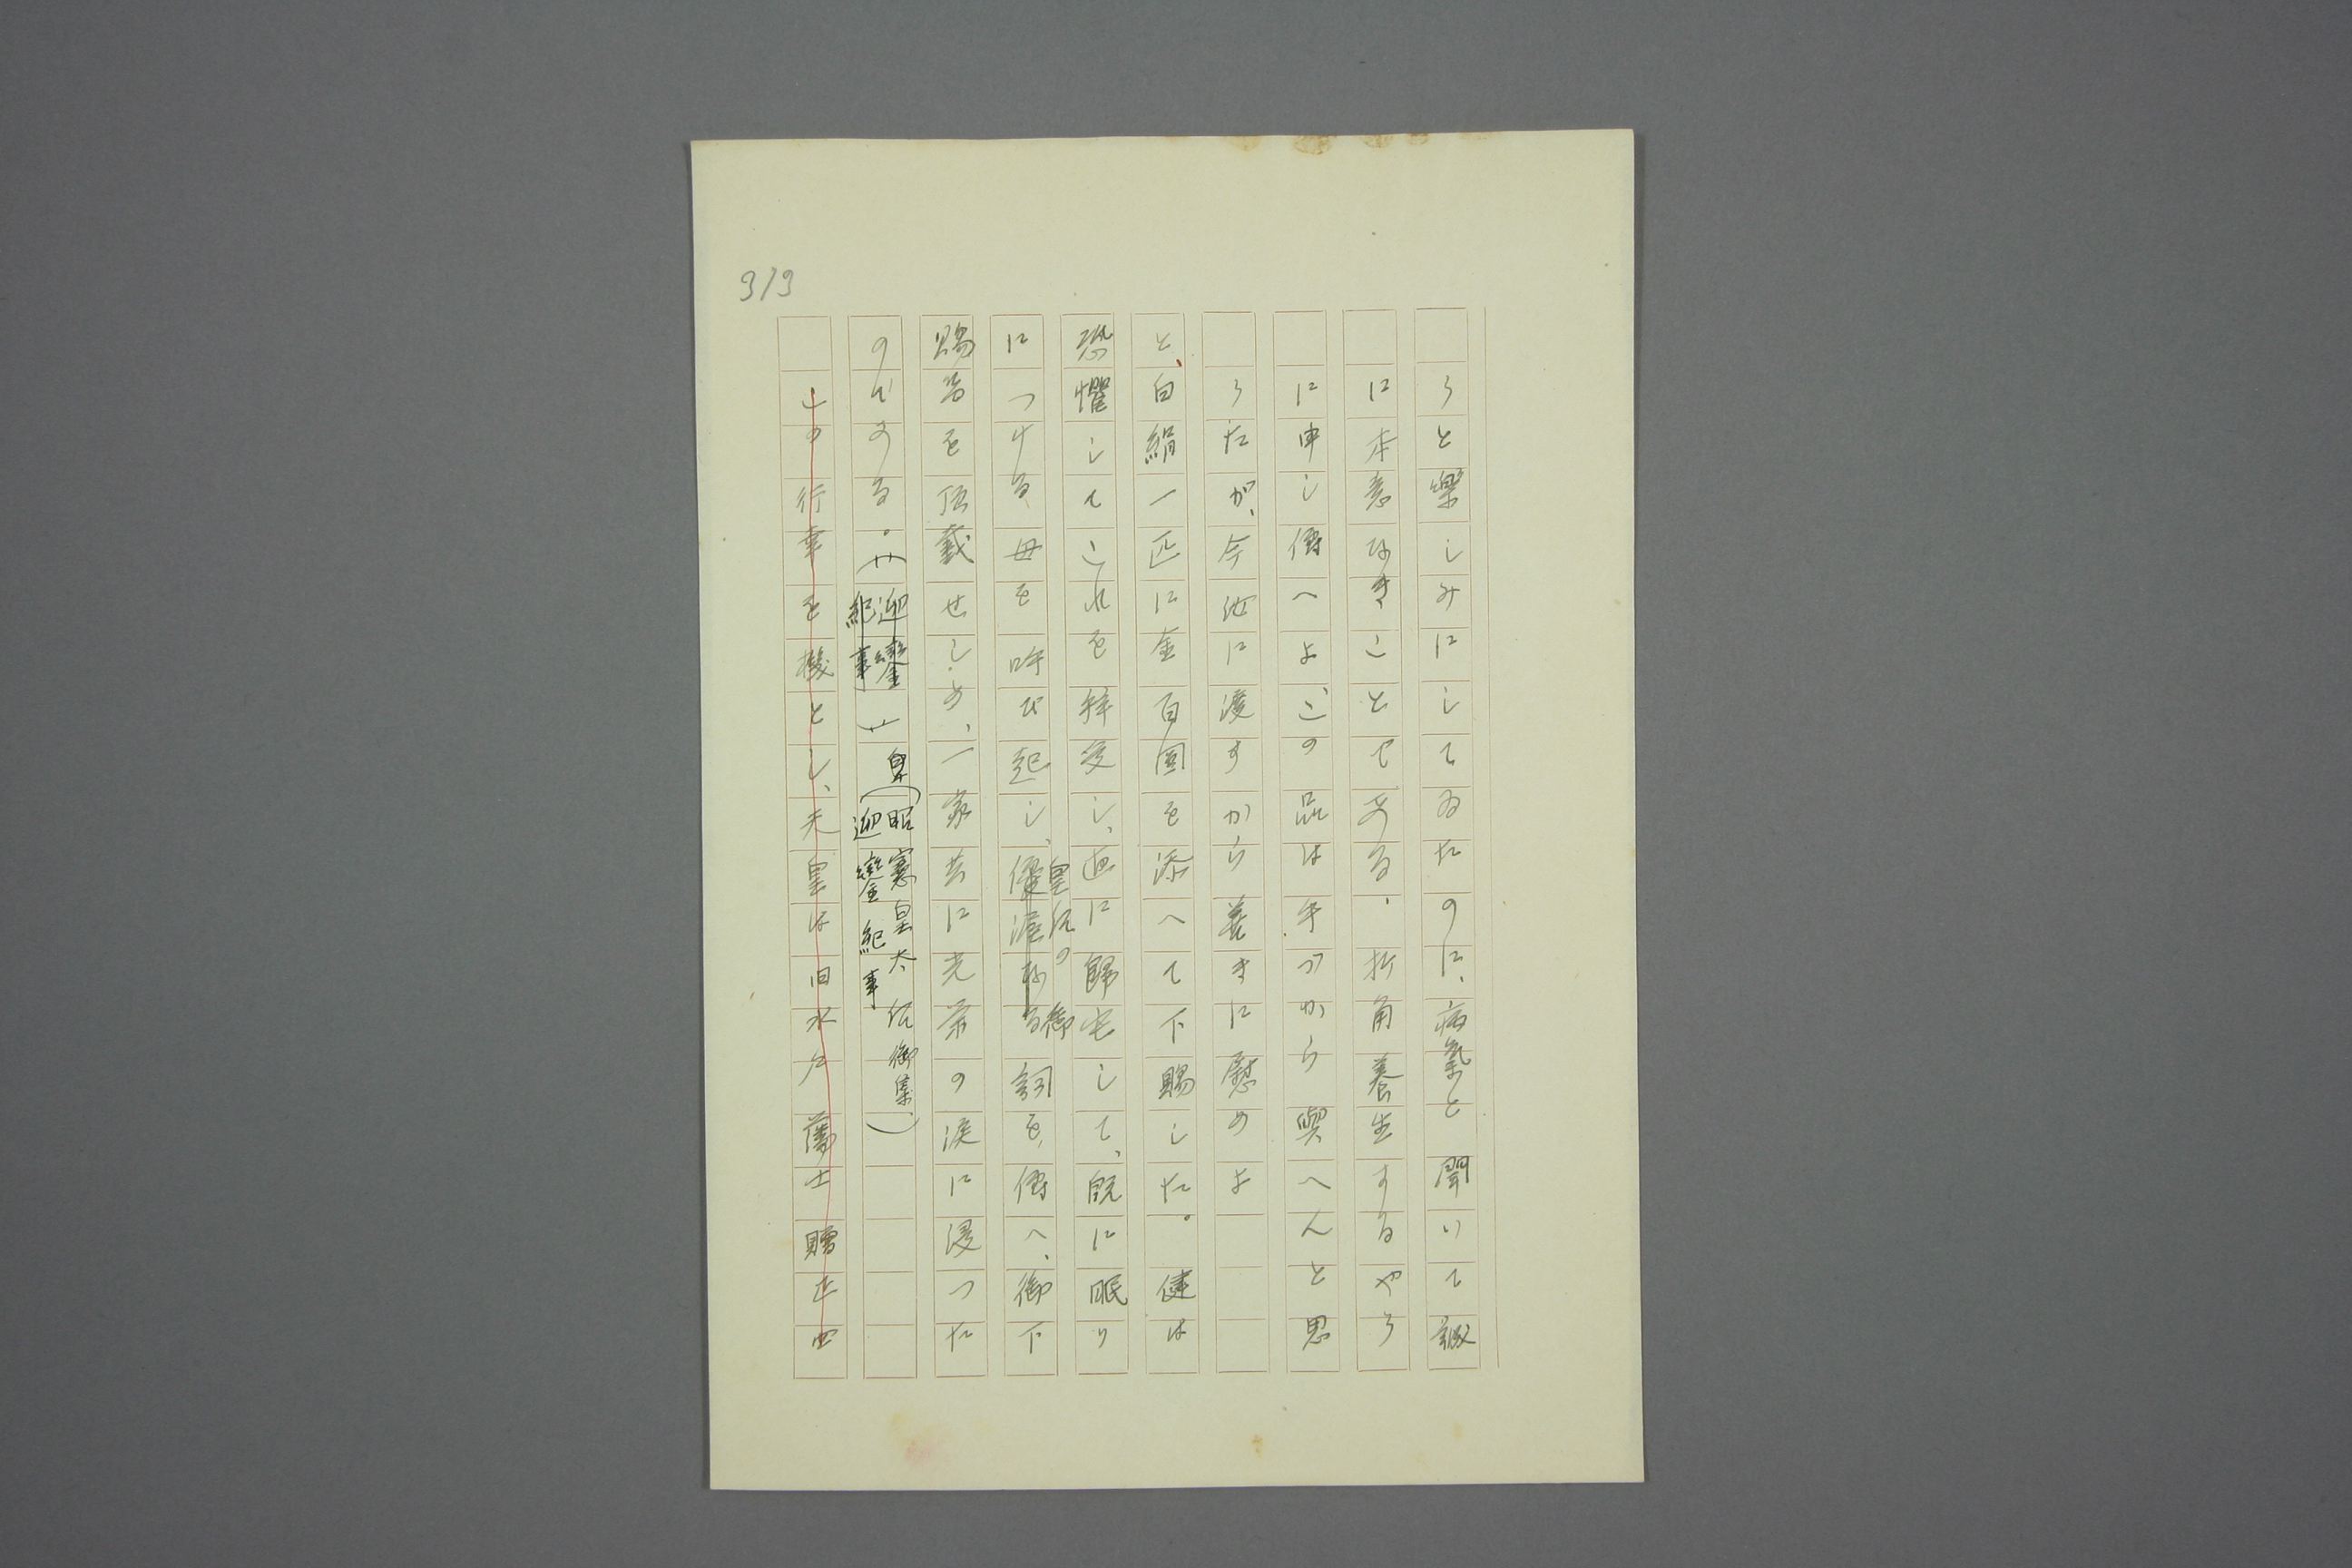 313
うと樂しみにしてゐたのに、病氣と聞いて誠
に本意なきことである、折角養生するやう
に申し傳へよ、この品は手づから與へんと思
うたが、今汝に渡すから善きに慰めよ
と、白絹一匹に金百圓を添へて下賜した。健は
恐懼してこれを拝受し、直に歸宅して、既に眠り
につける母を呼び起し、皇后の優渥なる御詞を傳へ、御下
賜品を頂戴せしめ、一家共に光榮の涙に浸つた
のである。(迎鑾紀事)(昭憲皇太后御集、迎鑾紀事)
この行幸を機とし、天皇は旧水戸藩士贈正四